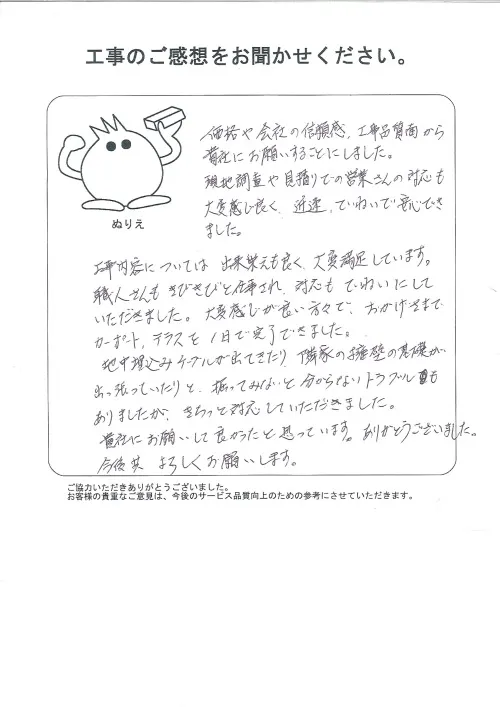 工事のご感想をお聞かせください。
価格や会社の信頼感、工事品質面から
貴社にお願いすることにしました。
現地調査や見積りでの営業さんの対応も
大変感じ良く、迅速、ていねいで安心でき
ました。
ぬりえ
工事内容については出来栄えも良く、大変満足しています。
職人さんもきびきびと仕事され、対応もていねいにして
いただきました。大変感じが良い方々で、おかげさまで
カーポート、テラスと1日で完了できました。
地中埋込みケーブルが出てきたり、隣家の擁壁の基礎が
出っ張っていたりと、掘ってみないと分からないトラブルも
ありましたが、きちっと対応していただきました。
貴社にお願いして良かったと思っています。ありがとうございました。
今後共よろしくお願いします。
ご協力いただきありがとうございました。
お客様の貴重なご意見は、今後のサービス品質向上のための参考にさせていただきます。